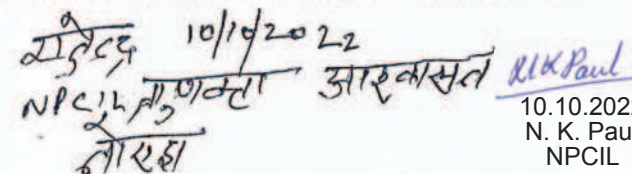 राजेन्द्र 10/10/2022
NPCIL गुणवत्ता आश्वासन
N K Paul
10.10.202
N. K. Pau
NPCIL